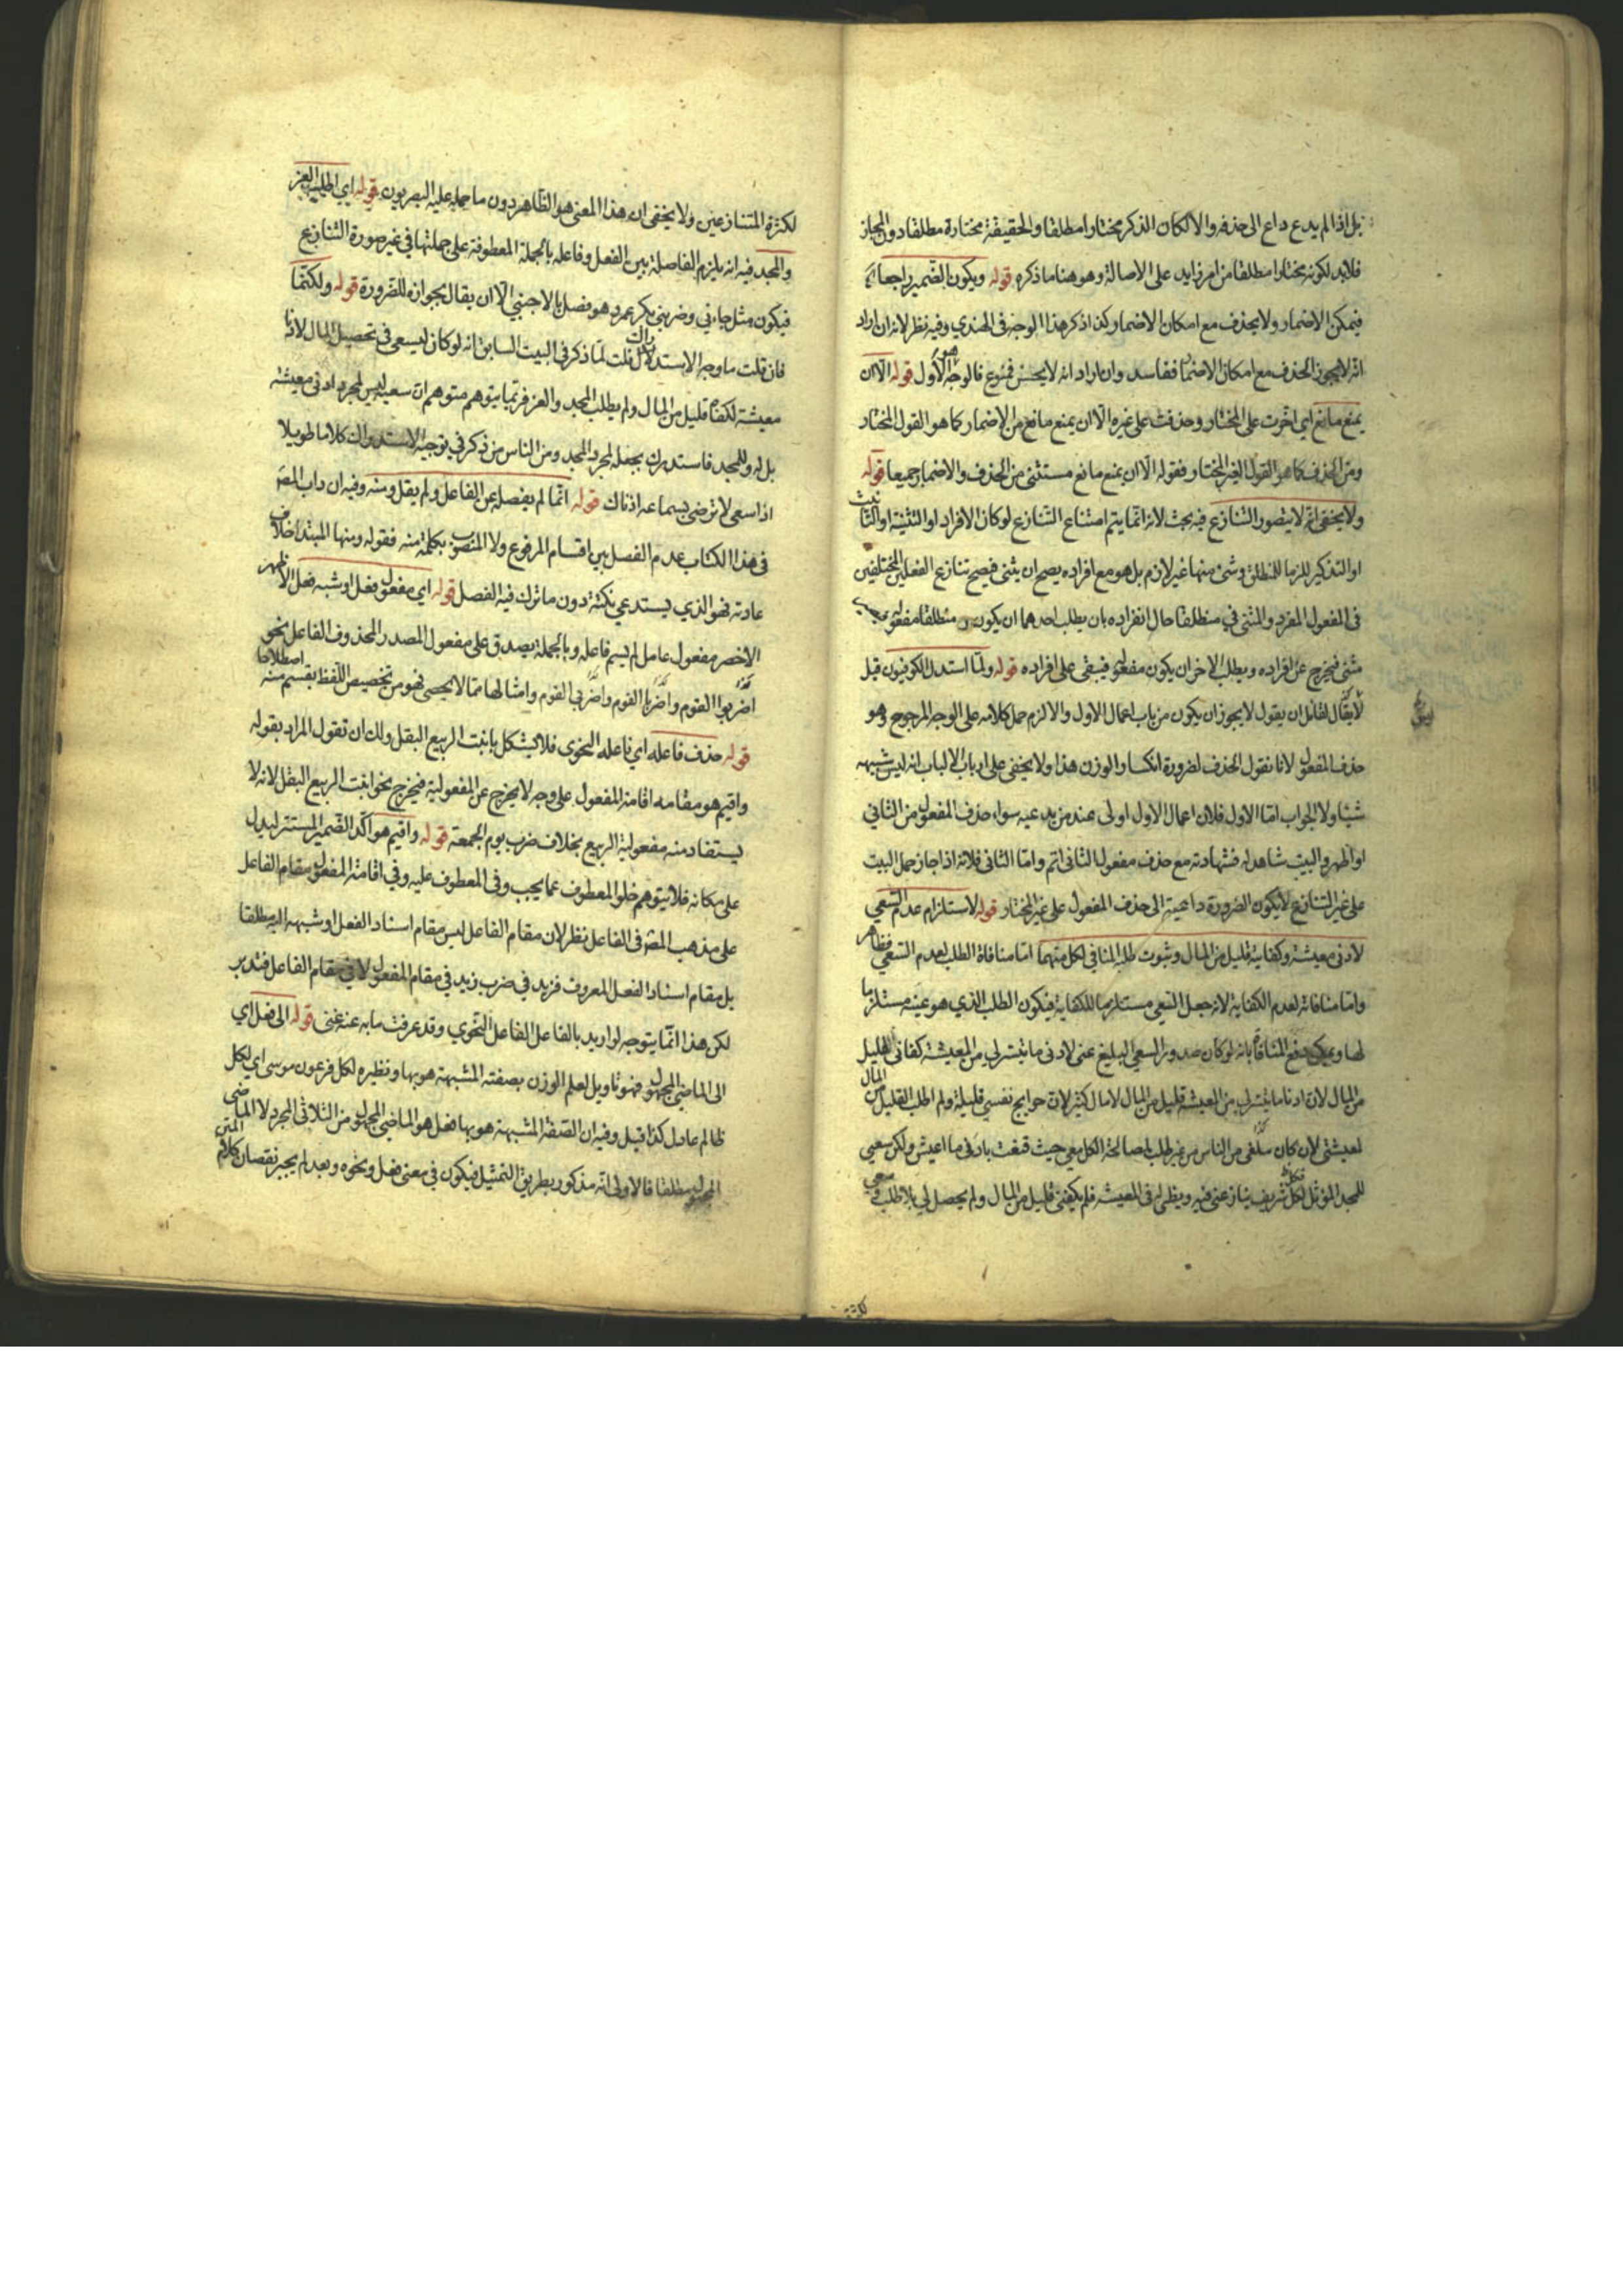 بل اذا لم يدع داع الى حذفه والا لكان الذكر مختارا مطلقا والحقيقة مختارة مطلقا دون المجاز
فلا بد لكونه مختارا مطلقا من امر زايد على الاصالة وهو هنا ما ذكره قوله ويكون الضمير راجعا
فيمكن الاضمار ولا يحذف مع امكان الاضمار كذا ذكر هذا الوجه في الهندي وفيه نظر لانه ان اراد
انه لا يجوز الحذف مع امكان الاضمار ففاسد وان اراد انه لا يحسن فممنوع فالوجه هو الاول قوله الا ان
يمنع مانع اي اخرت على المختار وحذفت على غيره الا ان يمنع مانع من الاضمار كما هو القول المختار
ومن الحذف كما هو القول الغير المختار فقوله الا ان يمنع مانع مستثنى من الحذف والاضمار جميعا قوله
ولا يخفى انه لا يتصور التنازع فيه بحث لانه انما يتم امتناع التنازع لو كان الافراد او التثنية او التانيث
او التذكير لازما للمنطلق وشئ منها غير لازم بل هو مع افراده يصح ان يثنى فيصح تنازع الفعلين المختلفين
في المفعول المفرد والمثنى في منطلقا حال انفراده بان يطلب احدهما ان يكون منطلقا مفعوله
مثنى فيخرج عن افراده ويطلب الاخر ان يكون مفعوله فيبقى على افراده قوله ولما استدل الكوفيون قيل
لا يقال لقائل ان يقول لا يجوز ان يكون من باب اعمال الاول والا لزم حمل كلامه على الوجه المرجوح وهو
حذف المفعول لانا نقول الحذف لضرورة انكسار الوزن هذا ولا يخفى على ارباب الالباب انه ليس شبهه
شيئا ولا الجواب اما الاول فلان اعمال الاول اولى عند من يدعيه سواء حذف المفعول من الثاني
او اظهر والبيت شاهد له فشهادته مع حذف مفعول الثاني اتم واما الثاني فلانه اذا جاز حمل البيت
على غير التنازع لا يكون الضرورة داعية الى حذف المفعول على غير المختار قوله لاستلزام عدم السعي
لادنى معيشة وكفاية قليل من المال وثبوت طلبه المنافي لكل منهما اما منافاة الطلب لعدم السعي فظاهر
واما منافاته لعدم الكفاية لانه جعل السعي مستلزما للكفاية فيكون الطلب الذي هو عينه مستلزما
لها ويمكن دفع المنافاة بانه لو كان صدور السعي البليغ عني لادنى ما يتيسر لي من المعيشة كفاني القليل
من المال لان ادنا ما يتيسر لي من المعيشة قليل من المال لا مال كثير لان حوايج نفسي قليلة ولم اطلب القليل من المال
لمعيشتي لان كان من الناس من غير طلب لمصالحة الكل معي حيث قنعت بادنى ما اعيش ولكن سعيي
للمجد المؤثل لكل شريف ينازعني فيه ويظهر له في المعيشة فلم يكفني قليل من المال ولم يحصل لي بلا طلب وسعي
لكثرة المتنازعين ولا يخفى ان هذا المعنى هو الظاهر دون ما حمله عليه البصريون قوله اي اطلب العز
والمجد فيه انه يلزم الفاصلة بين الفعل وفاعله بالجملة المعطوفة على جملتها في غير صورة التنازع
فيكون مثل جاءني وضربني بكر عمرو وهو فصل بالاجنبي الا ان يقال بجوازه للضرورة قوله ولكنما
فان قلت ما وجه الاستدراك قلت لما ذكر في البيت السابق انه لو كان يسعى في تحصيل المال لادنا
معيشة لكفاه قليل من المال ولم يطلب المجد والعز فربما يتوهم متوهم ان سعيه ليس لمجرد ادنى معيشة
بل له وللمجد فاستدرك بجعله لمجرد المجد ومن الناس من ذكر في توجيه الاستدراك كلاما طويلا
اذا سعى لا ترضى بسماعه اذناك قوله انما لم يفصل عن الفاعل ولم يقل ومنه وفيه ان داب المص
في هذا الكتاب عدم الفصل بين اقسام المرفوع ولا المنصوب بكلمة منه فقوله ومنها المبتدا خلاف
عادته فهو الذي يستدعي نكتة دون ما ترك فيه الفصل قوله اي مفعول فعل او شبه فعل الاظهر
الاخصر مفعول عامل لم يسم فاعله وبالجملة يصدق على مفعول المصدر المحذوف الفاعل نحو
اضربوا القوم واضربا القوم واضربي القوم وامثالها مما لا يحصى فهو من تخصيص اللفظ بقسم منه اصطلاحا
قوله حذف فاعله اي فاعله النحوي فلا يشكل بانبت الربيع البقل ولك ان تقول المراد بقوله
واقيم هو مقامه اقامة المفعول على وجه لا يخرج عن المفعولية فيخرج نحو انبت الربيع البقل لانه لا
يستفاد منه مفعولية الربيع بخلاف ضرب يوم الجمعة قوله واقيم هو اكد الضمير المستتر ليدل
على مكانه فلا يتوهم خلو المعطوف عما يجب وفي المعطوف عليه وفي اقامة المفعول مقام الفاعل
على مذهب المص في الفاعل نظر لان مقام الفاعل ليس مقام اسناد الفعل او شبهه اليه مطلقا
بل مقام اسناد الفعل المعروف فزيد في ضرب زيد في مقام المفعول لا في مقام الفاعل فتدبر
لكن هذا انما يتوجه لو اريد بالفاعل الفاعل النحوي وقد عرفت ما به عنه غنى قوله الى فعل اي
الى الماضي المجهول فهو تاويل لعلم الوزن بصفته المشبهة هو بها ونظيره لكل فرعون موسى اي لكل
ظالم عادل كذا قيل وفيه ان الصفة المشبهة هو بها فعل هو الماضي المجهول من الثلاثي المجرد لا الماضي
المجهول مطلقا فالاولى انه مذكور بطريق التمثيل فيكون في معنى فعل ونحوه وبعد لم يجبر نقصان كلام المتن